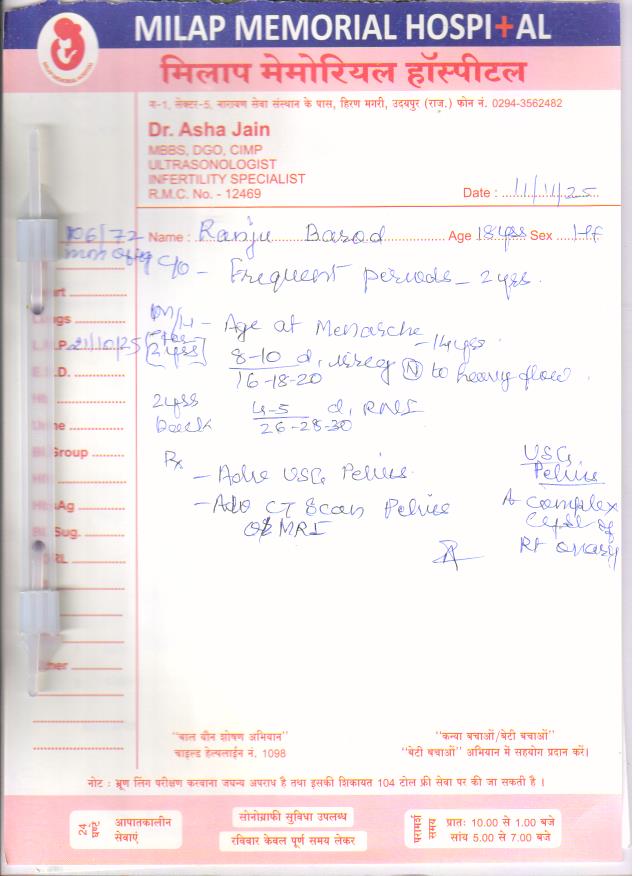 MILAP MEMORIAL HOSPITAL
MILAP MEMORIAL HOSPITAL
मिलाप मेमोरियल हॉस्पीटल
ग-1, सेक्टर-5, नारायण सेवा संस्थान के पास, हिरण मगरी, उदयपुर (राज.) फोन नं. 0294-3562482
Dr. Asha Jain
MBBS, DGO, CIMP
ULTRASONOLOGIST
INFERTILITY SPECIALIST
R.M.C. No. - 12469
Date : 11/11/25
106/72 Name : Ranju Barod Age 18 yrs Sex
C/o - Frequent periods - 2 yrs.
M/H - Age at Menarche - 14 yrs.
L.M.P. 21/10/25 2 yrs 8-10 d, irreg (N) to heavy flow.
16-18-20
2 yrs back 4-5 d, RNF
26-28-30
Rx
- Adv USG Pelvis.
- Adv CT Scan Pelvis
or MRI
USG
Pelvis
A complex
cyst of
Rt ovary
Group
Sug.
"बाल यौन शोषण अभियान"
चाइल्ड हेल्पलाईन नं. 1098
"कन्या बचाओं/बेटी बचाओं"
"बेटी बचाओं" अभियान में सहयोग प्रदान करें।
नोट : भ्रूण लिंग परीक्षण करवाना जघन्य अपराध है तथा इसकी शिकायत 104 टोल फ्री सेवा पर की जा सकती है ।
24 घण्टे आपातकालीन सेवाएं
सोनोग्राफी सुविधा उपलब्ध
रविवार केवल पूर्ण समय लेकर
परामर्श समय प्रातः 10.00 से 1.00 बजे
सांय 5.00 से 7.00 बजे